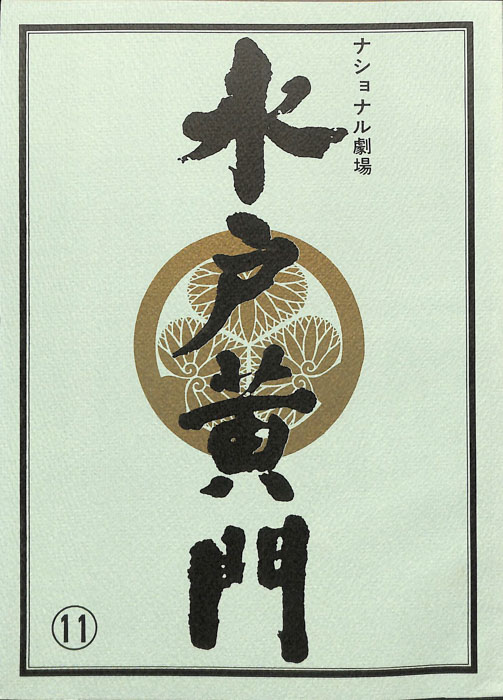 ナショナル劇場
水戸黄門
⑪